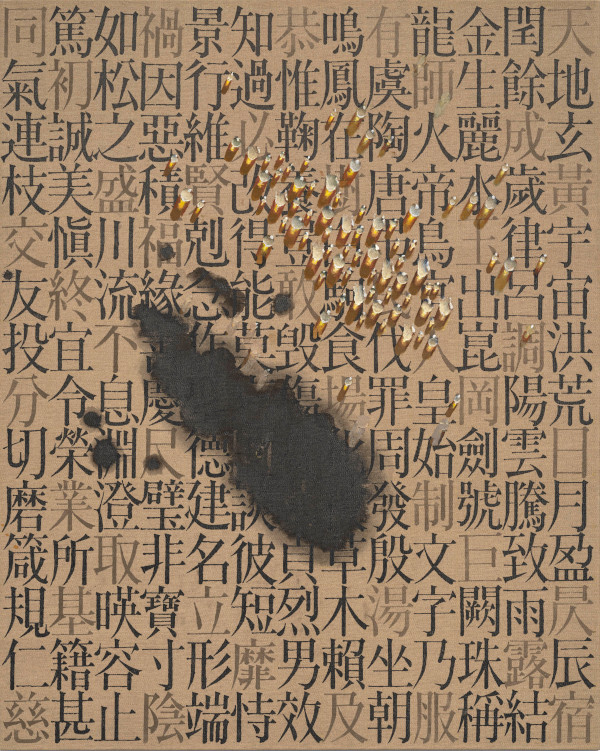 天地玄黃宇宙洪荒日月盈昃辰宿
閏餘成歲律呂調陽雲騰致雨露結
金生麗水玉出崑岡劍號巨闕珠稱
龍師火帝鳥官人皇始制文字乃服
有虞陶唐伐罪周發殷湯坐朝
嗚鳳在食場草木賴及
恭惟鞠養豈敢毀傷貞烈男效
知過必改得能莫談彼短靡恃
景行維賢剋念作德建名立形端
禍因惡積福緣善慶尺璧非寶寸陰
如松之盛川流不息淵澄取暎容止
篤初誠美愼終宜令榮業所基籍甚
同氣連枝交友投分切磨箴規仁慈